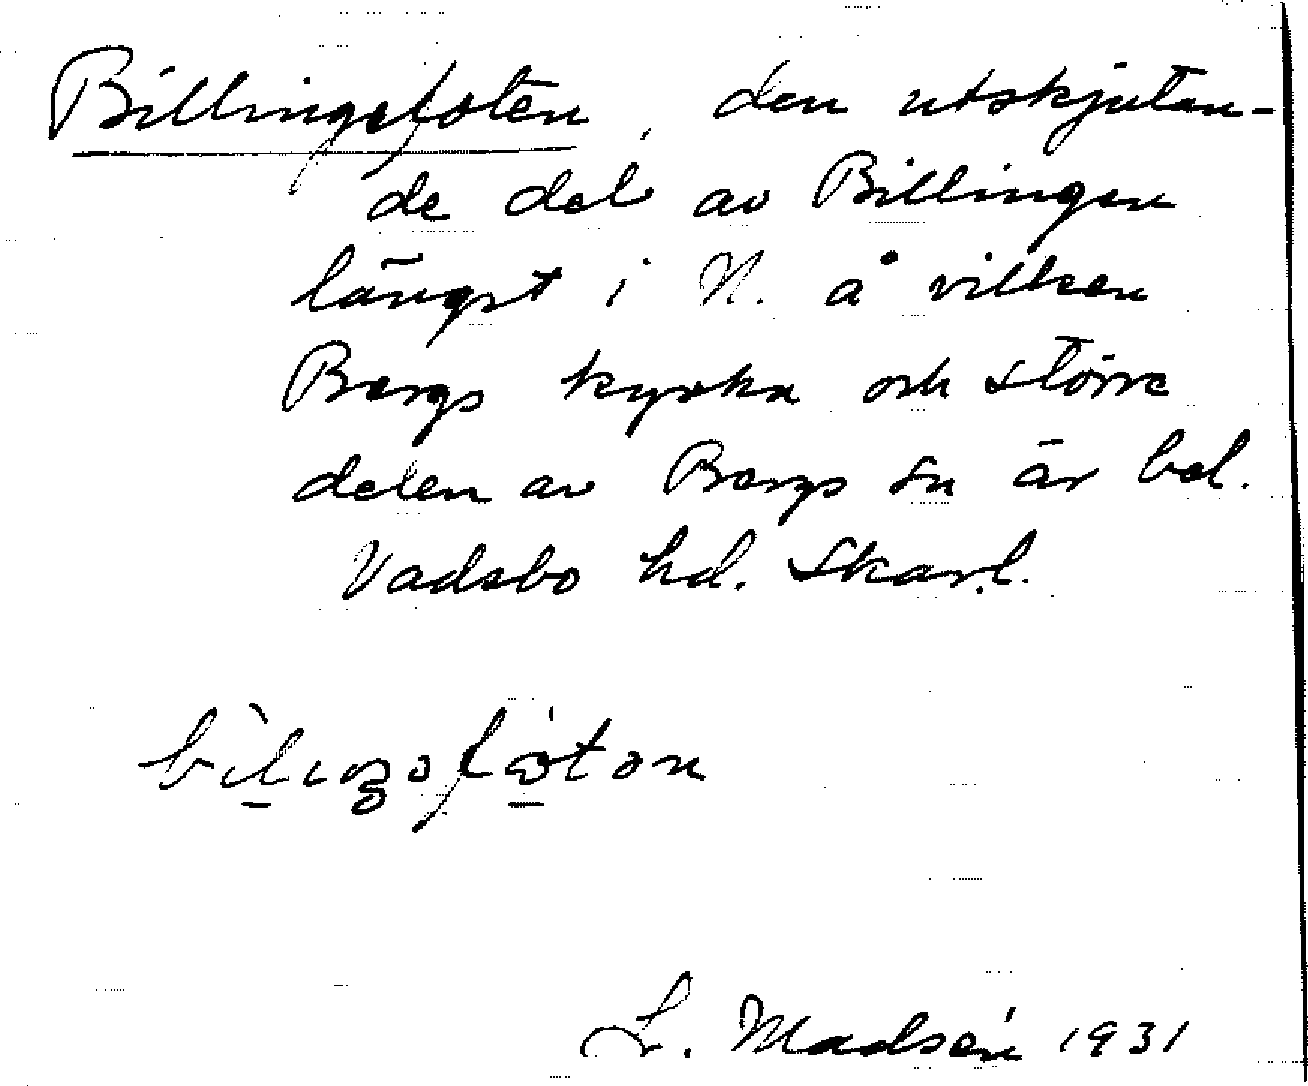 Billingsfoten, den utskjutan-
de del av Billingen
längst i N. å vilken
Bergs kyrka och större
delen av Bergs sn är bel.
Vadsbo hd. Skar.l.
L. Madsén 1931